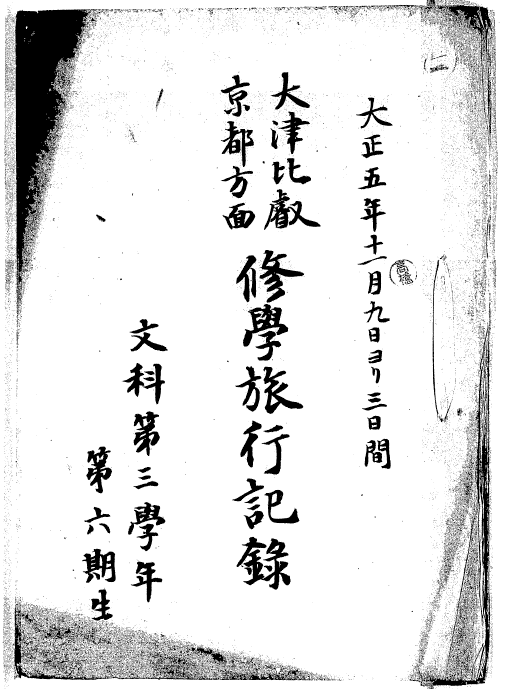 (二)
大正五年十一月九日ヨリ三日間
高橋
大津比叡
京都方面
修學旅行記録
文科第三學年
第六期生